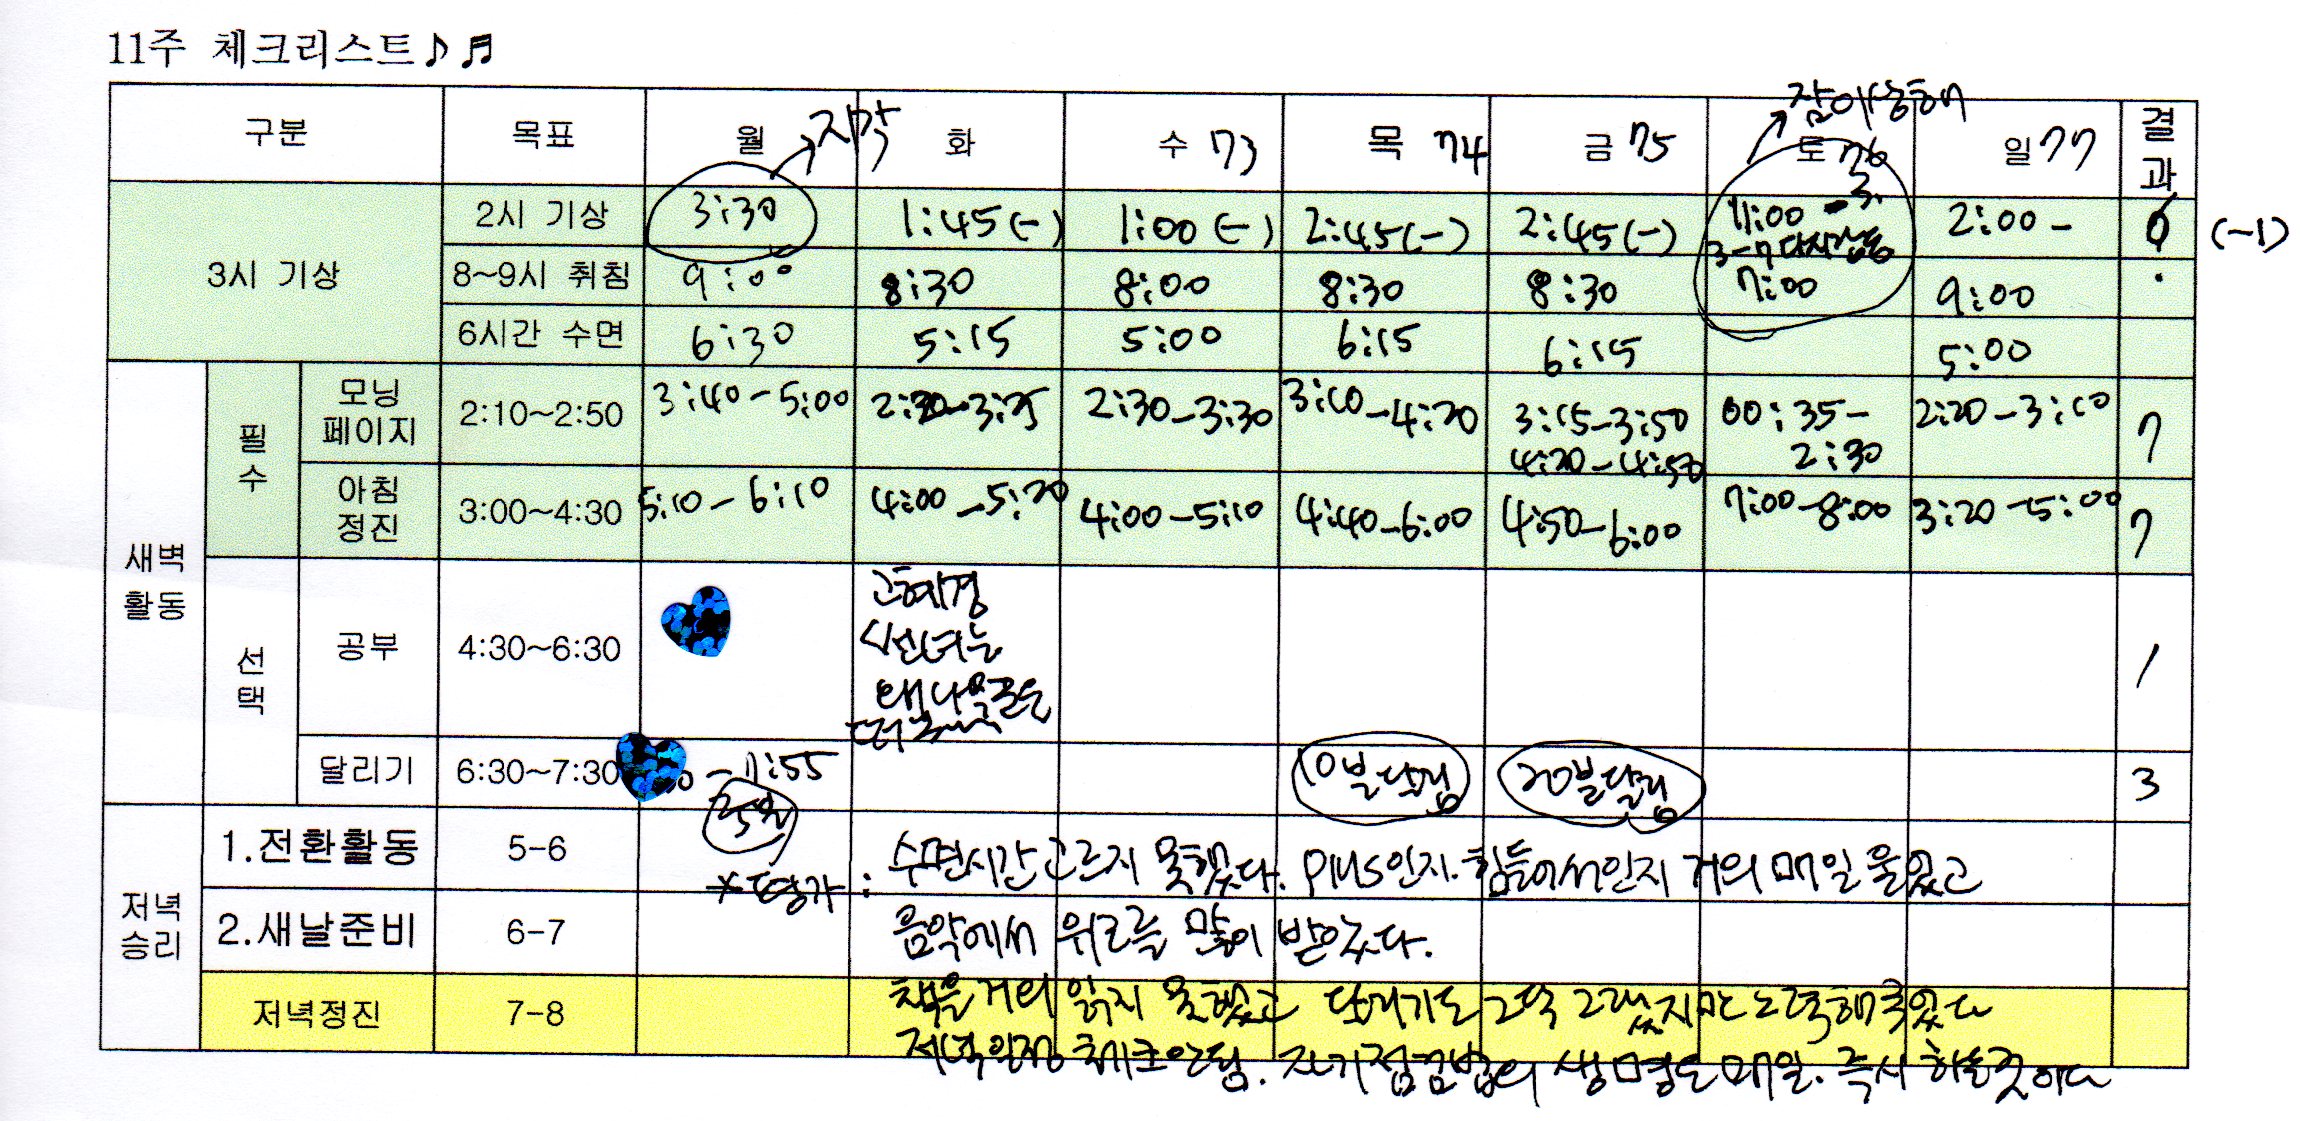 11주 체크리스트♪♬
자각
잠이상해
구분 목표 월 화 수 73 목 74 금 75 토 76 일 77 결과
3시 기상
2시 기상 3:30 1:45(-) 1:00(-) 2:45(-) 2:45(-) 11:00 - 3. 2:00- (-1)
3-7 다시잠듬
8~9시 취침 9:00 8:30 8:00 8:30 8:30 7:00 9:00
6시간 수면 6:30 5:15 5:00 6:15 6:15 5:00
새벽 활동
필수
모닝 페이지 2:10~2:50 3:40-5:00 2:30-3:35 2:30-3:30 3:10-4:20 3:15-3:50 00:35- 2:20-3:10 7
4:20-4:50 2:30
아침 정진 3:00~4:30 5:10-6:10 4:00-5:20 4:00-5:10 4:40-6:00 4:50-6:00 7:00-8:00 3:20-5:00 7
선택
공부 4:30~6:30 고혜경 1
선녀는
왜 나무꾼을
떠
달리기 6:30~7:30 -7:55 10분달림 20분달림 3
25분
저녁 승리
1.전환활동 5-6
*평가: 수면시간 고르지 못했다. plus인지. 힘들어서인지 거의 매일 울었고
2.새날준비 6-7 음악에서 위로를 많이 받았다.
저녁정진 7-8 책을 거의 읽지 못했고 달리기도 그닥 그랬지만 노력해주었다
저녁일정 체크안됨. 자기점검법의 생명은 매일. 즉시 하는것이다